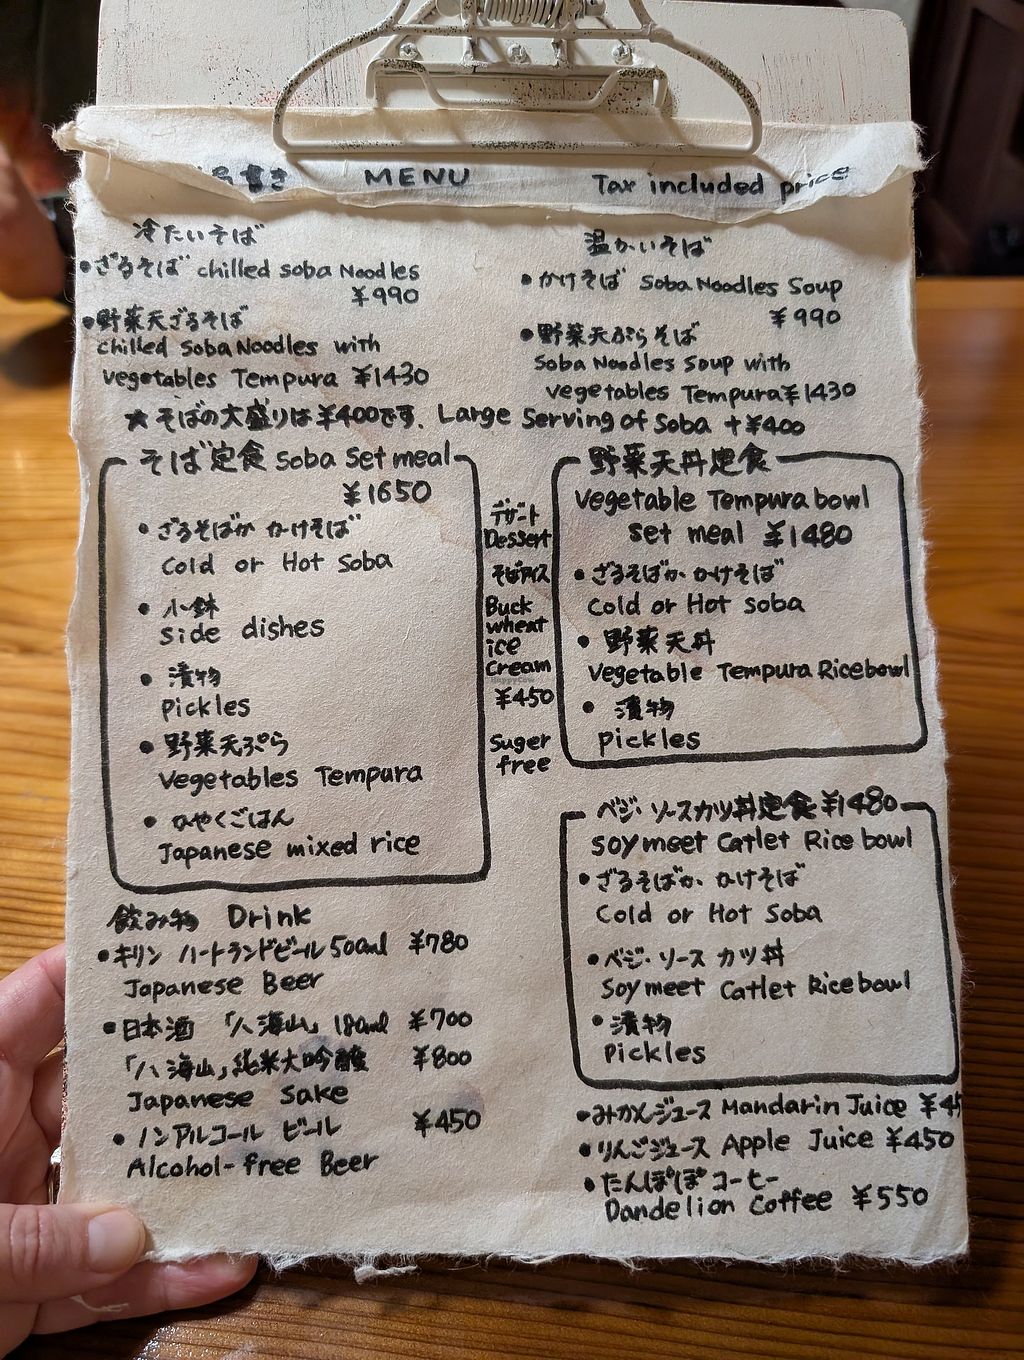 書き MENU Tax included price
冷たいそば
•ざるそば chilled soba Noodles
¥990
•野菜天ざるそば
chilled Soba Noodles with
vegetables Tempura ¥1430
温かいそば
•かけそば Soba Noodles Soup
¥990
•野菜天ぷらそば
Soba Noodles Soup with
vegetables Tempura ¥1430
★そばの大盛りは¥400です. Large Serving of Soba +¥400
そば定食 Soba Set meal
¥1650
•ざるそばか かけそば
Cold or Hot Soba
•小鉢
Side dishes
•漬物
Pickles
•野菜天ぷら
Vegetables Tempura
•かやくごはん
Japanese mixed rice
デザート
Dessert
そばアイス
Buck
wheat
ice
Cream
¥450
Suger
free
野菜天丼定食
Vegetable Tempura bowl
Set meal ¥1480
•ざるそばか、かけそば
Cold or Hot Soba
•野菜天丼
Vegetable Tempura Rice bowl
•漬物
Pickles
ベジ・ソースカツ丼定食 ¥1480
Soy meet Catlet Rice bowl
•ざるそばか、かけそば
Cold or Hot Soba
•ベジ・ソース カツ丼
Soy meet Catlet Rice bowl
•漬物
Pickles
飲み物 Drink
•キリン ハートランドビール 500ml ¥780
Japanese Beer
•日本酒 「八海山」 180ml ¥700
「八海山」純米大吟醸 ¥800
Japanese Sake
•ノンアルコール ビール ¥450
Alcohol-free Beer
•みかんジュース Mandarin Juice ¥45
•りんごジュース Apple Juice ¥450
•たんぽぽコーヒー
Dandelion Coffee ¥550